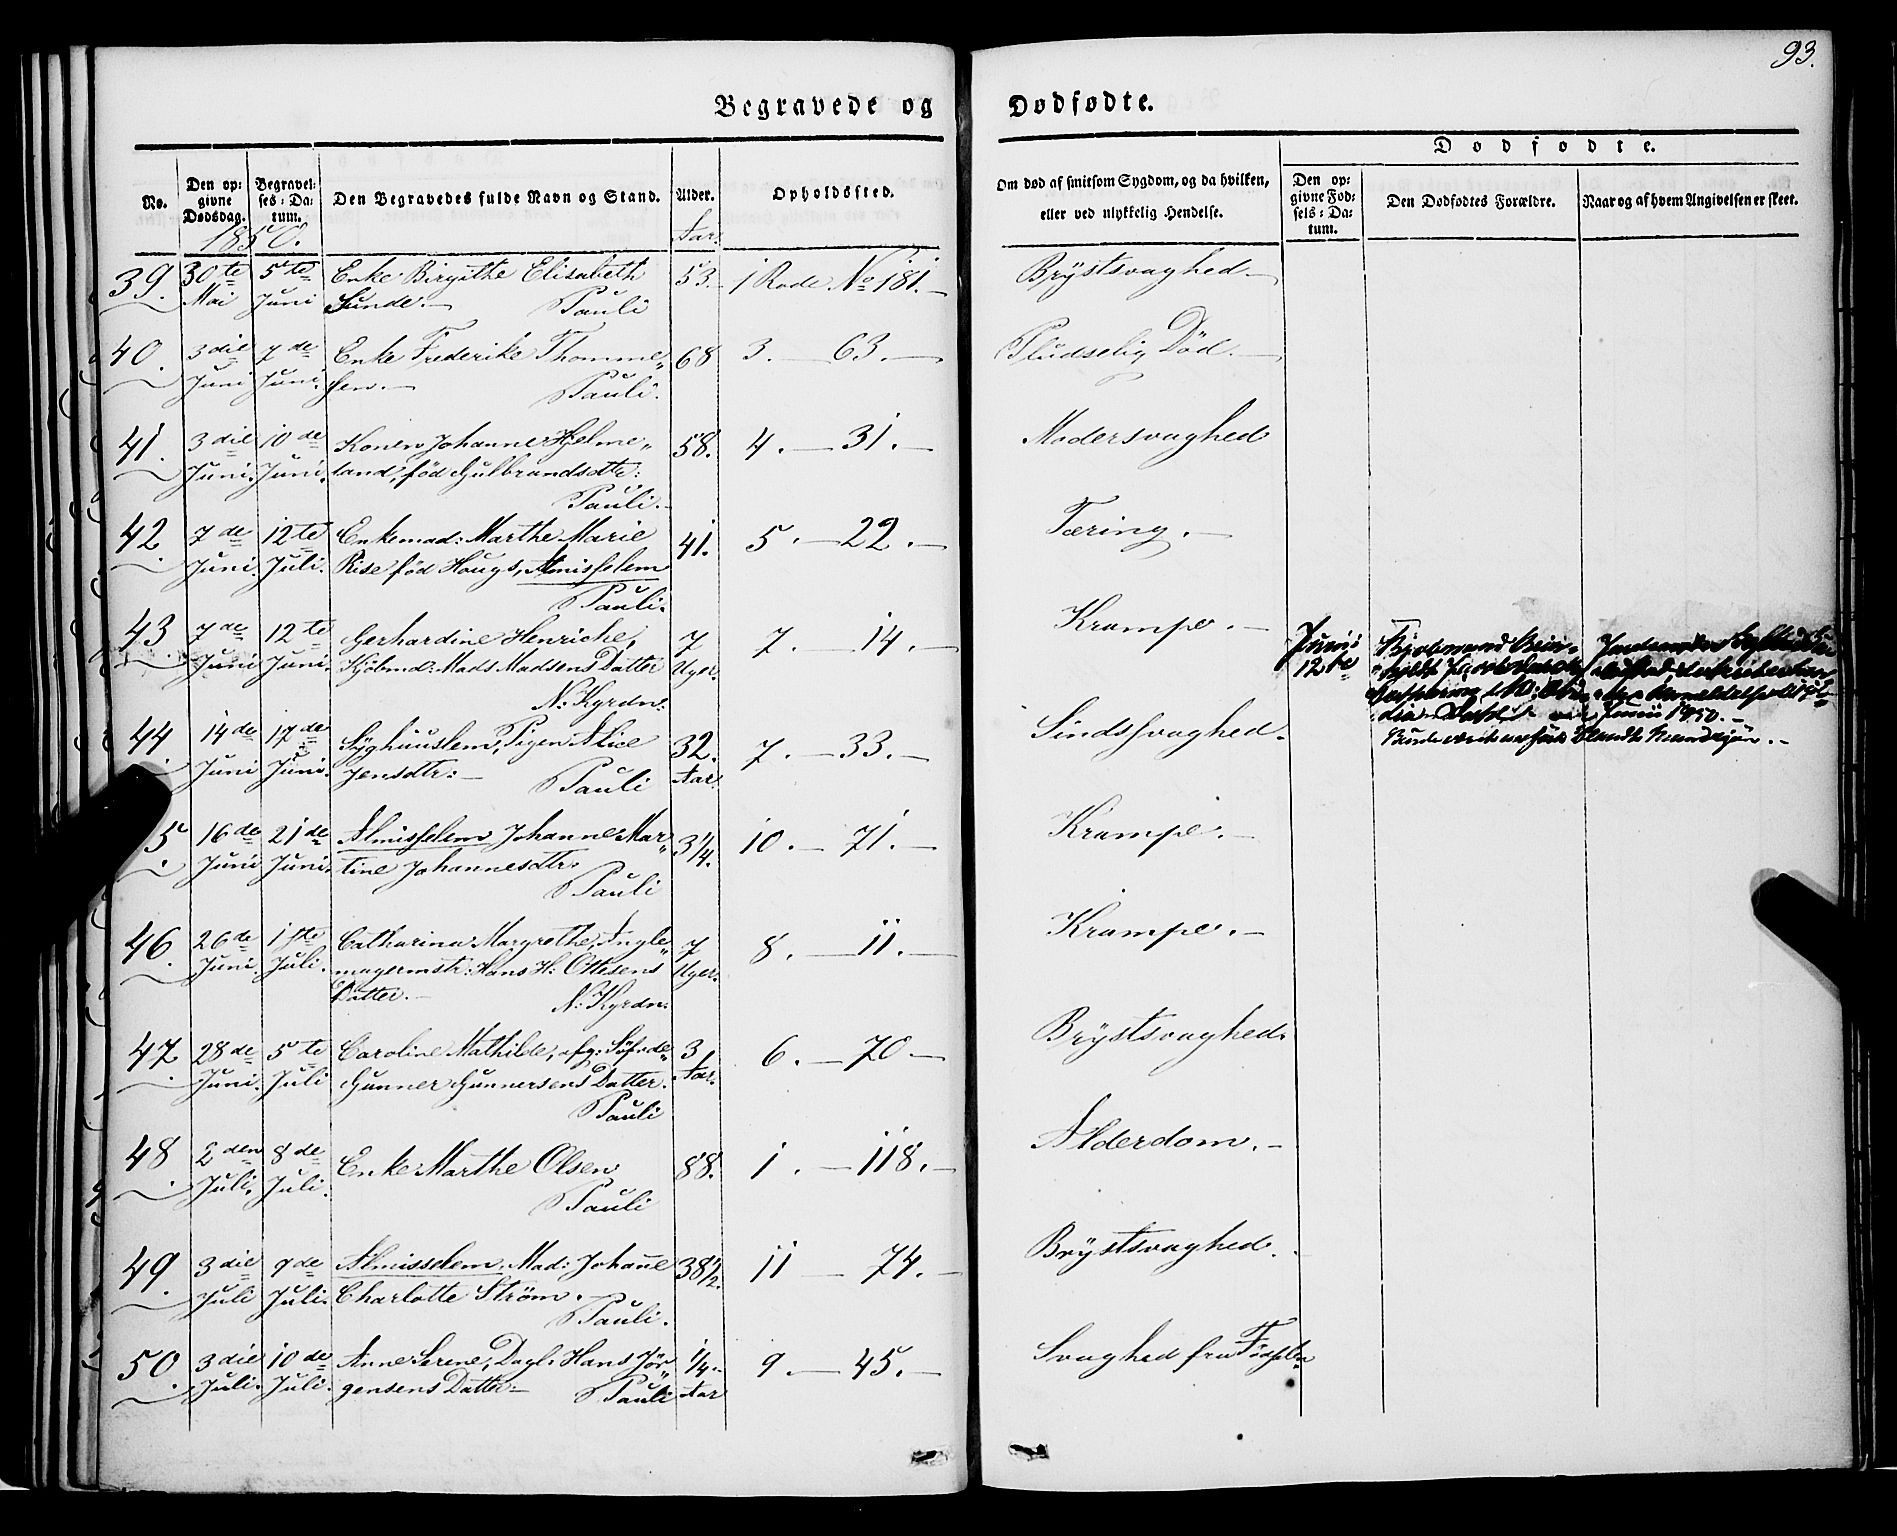 93.
Begravede og Dødfødte.
No.
Den opgivne Dødsdag.
Begravelses-Datum.
Den Begravedes fulde Navn og Stand.
Alder.
Opholdssted.
Om død af smitsom Sygdom, og da hvilken,
eller ved ulykkelig Hendelse.
Dødfødte.
Den opgivne Fødsels-Datum.
Den Dødfødtes Forældre.
Naar og af hvem Angivelsen er skeet.
1850.
Aar.
39. 30te 5te Enke Birgithe Elisabeth 53. 1 Rode No 181. Brÿstsvaghed.
Mai Juni Sunde. Pauli
40. 3die 7de Enke Frederike Thomme„ 68 3. 63. Pludselig Död.
Juni Juni. sen. Pauli.
41. 3die 10de Konen Johanne Hjelme„ 58. 4. 31. Modersvaghed
Juni. Juni. land, föd Gulbrandsdtr:
Pauli.
42 7de 12te Enkemad: Marthe Marie 41. 5. 22. Tæring.
Juni. Juli. Rise föd Hougs, Almisselem
Pauli.
43 7de 12te Gerhardine Henriche, 7 7. 14. Krampe.
Juni Juni. Kjöbmd: Mads Madsens Datter Uger.
N: Kyrdn:
Junii
12te
Junii 1850.
44 14de 17de Sÿghuuslem, Pigen Alice 32. 7. 33. Sindssvaghed.
Juni Juni. Jensdtr: Pauli Aar.
5 16de 21de Almisselem Johanne Mar„ 3 1/4. 10. 71. Krampe.
Juni Juni. tine Johannesdtr:
Pauli
46. 26de 1ste Catharina Margrethe, 7 8. 11. Krampe.
Juni. Juli. magermstr: Hans H: Ottesens Uger.
Datter. N: Kyrdn:
47 28de 5te Caroline Mathilde, afg: 3 6. 70 Brÿstsvaghed.
Juni. Juli Gunner Gunnersens Datter. Aar.
Pauli
48 2den 8de Enke Marthe Olsen 88. 1. 118. Alderdom.
Juli. Juli. Pauli
49. 3die 9de Almisselem, Mad: Johanne 38 1/2. 11 74. Brÿstsvaghed.
Juli Juli. Charlotte Strøm.
Pauli.
50. 3die 10de Anne Serene, Dagl: Hans Jör„ 1/4 9. 45. Svaghed fra Födselen
Juli. Juli. gensens Datter Pauli Aar